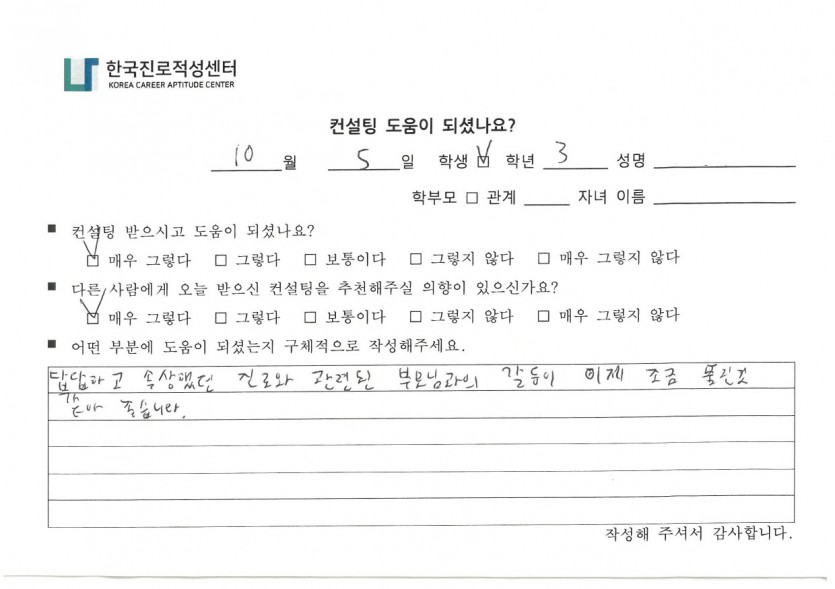 한국진로적성센터
KOREA CAREER APTITUDE CENTER
컨설팅 도움이 되셨나요?
10 월 5 일 학생 ☑ 학년 3 성명
학부모 □ 관계 자녀 이름
■ 컨설팅 받으시고 도움이 되셨나요?
☑ 매우 그렇다 □ 그렇다 □ 보통이다 □ 그렇지 않다 □ 매우 그렇지 않다
■ 다른 사람에게 오늘 받으신 컨설팅을 추천해주실 의향이 있으신가요?
☑ 매우 그렇다 □ 그렇다 □ 보통이다 □ 그렇지 않다 □ 매우 그렇지 않다
■ 어떤 부분에 도움이 되셨는지 구체적으로 작성해주세요.
답답하고 속상했던 진로와 관련된 부모님과의 갈등이 이제 조금 풀린것
같아 좋습니다.
작성해 주셔서 감사합니다.